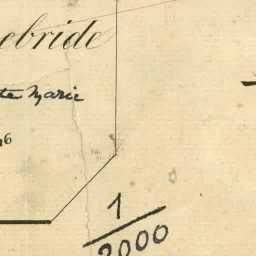 ebride
te Marie
6
1/2000